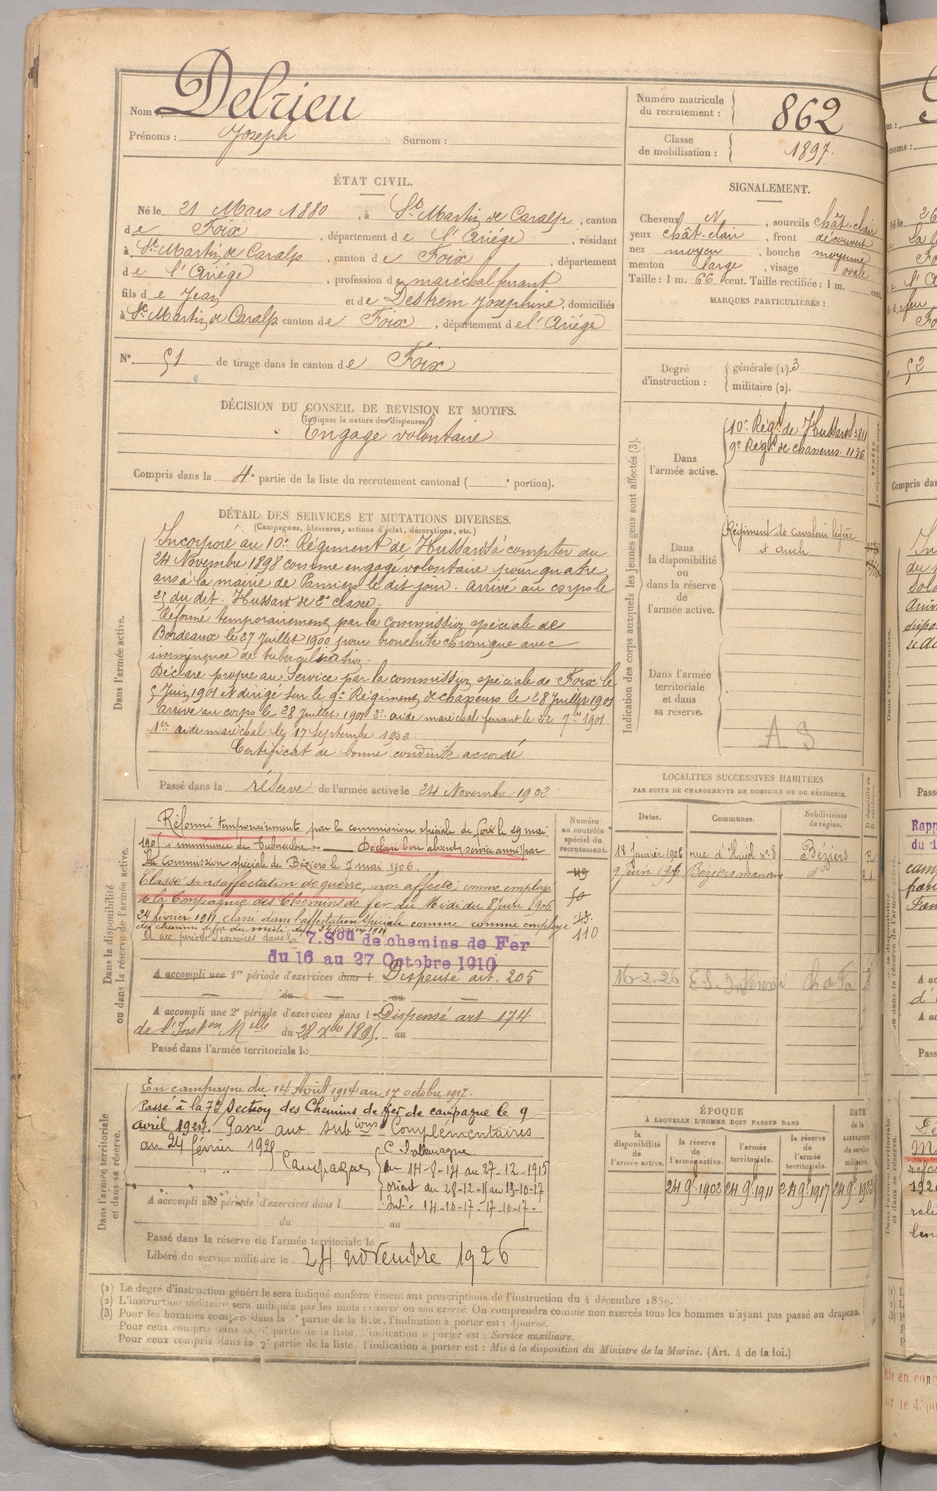 Nom Delrieu
Prénoms : Joseph Surnom :
Numéro matricule du recrutement : 862
Classe de mobilisation : 1897.
ÉTAT CIVIL.
Né le 21 Mars 1880, à St Martin de Caralp, canton
de Foix, département de l'Ariège, résidant
à St Martin de Caralp, canton de Foix, département
de l'Ariège, profession de maréchal ferrant
fils de Jean et de Destrem Joséphine, domiciliés
à St Martin de Caralp canton de Foix, département de l'Ariége
N° 51 de tirage dans le canton de Foix
SIGNALEMENT.
Cheveux N, sourcils chât-clair
yeux chât-clair, front découvert
nez moyen, bouche moyenne
menton large, visage ovale
Taille : 1 m. 66 cent. Taille rectifiée : 1 m. cent.
MARQUES PARTICULIÈRES :
Degré d'instruction : générale (1). 3
militaire (2).
DÉCISION DU CONSEIL DE REVISION ET MOTIFS.
(Indiquer la nature des dispenses)
Engagé volontaire
Compris dans la 4e partie de la liste du recrutement cantonal ( e portion).
DÉTAIL DES SERVICES ET MUTATIONS DIVERSES.
(Campagnes, blessures, actions d'éclat, décorations, etc.)
Dans l'armée active.
Incorporé au 10e Régiment de Hussards à compter du
24 Novembre 1898 comme engagé volontaire pour quatre
ans à la mairie de Pamiers le dit jour. Arrivé au corps le
25 du dit. Hussard de 2e classe.
Réformé temporairement par la commission spéciale de
Bordeaux le 27 Juillet 1900 pour bronchite chronique avec
imminence de tuberculisation.
Déclaré propre au Service par la commission spéciale de Foix le
5 Juin 1901 et dirigé sur le 9e Régiment de chasseurs le 28 Juillet 1901
Arrivé au corps le 28 Juillet 1901 2e aide maréchal ferrant le 22 7bre 1901
1er aide maréchal le 17 septembre 1902.
Certificat de bonne conduite accordé
Passé dans la réserve de l'armée active le 24 Novembre 1902
Indication des corps auxquels les jeunes gens sont affectés (3).
Dans l'armée active.
10e Régt de Hussards 3811
9e Régt de chasseurs 1126
Dans la disponibilité ou dans la réserve de l'armée active.
Régiment de cavalerie légère
d'Auch
Dans l'armée territoriale et dans sa réserve.
A S
Dans la disponibilité ou dans la réserve de l'armée active.
Réformé temporairement par la commission spéciale de Foix le 29 mai
Déclaré bon absent (service armé) par
la Commission spéciale de Béziers le 7 mai 1906.
Classé sans affectation de guerre, non affecté comme employé
à la Compagnie des Chemins de fer du Midi du 8 juin 1906
24 février 1911 classé dans l'affectation spéciale comme employé
7. Son de chemins de Fer
du 16 au 27 Octobre 1910
A accompli une 1re période d'exercices dans l Dispensé art. 205
du au
A accompli une 2e période d'exercices dans l Dispensé art 174
de l'Inston Mелle du 28 Xbre 1895. au
Passé dans l'armée territoriale le
Numéro au contrôle spécial du recrutement.
49
50
110
LOCALITÉS SUCCESSIVES HABITÉES
PAR SUITE DE CHANGEMENTS DE DOMICILE OU DE RÉSIDENCE.
Dates. Communes. Subdivisions de région.
18 Janvier 1906 rue d'Alfred n° 8 Béziers
9 juin 1906 Béziers do
16-2-26
Dans l'armée territoriale et dans sa réserve.
En campagne du 14 Août 1914 au 17 octobre 1917.
Passé à la 7e Section des Chemins de fer de campagne le 9
avril 1927. Passé aux Subons Complémentaires
au 24 février 1921
Campagnes C. l'allemagne
du 14-8-14 au 27-12-1915
orient du 28-12-15 au 13-10-17
Intr 14-10-17 - 17-10-17-
A accompli une période d'exercices dans l
du au
Passé dans la réserve de l'armée territoriale le
Libéré du service militaire le 24 novembre 1926
ÉPOQUE
À LAQUELLE L'HOMME DOIT PASSER DANS
la disponibilité de l'armée active. la réserve de l'armée active. l'armée territoriale. la réserve de l'armée territoriale. DATE de la LIBÉRATION du service militaire.
24 9bre 1902 24 9bre 1911 24 9bre 1917 24 9bre 1923
(1) Le degré d'instruction générale sera indiqué conformément aux prescriptions de l'instruction du 4 décembre 1889.
(2) L'instruction militaire sera indiquée par les mots : exercé ou non exercé. On comprendra comme non exercés tous les hommes n'ayant pas passé au drapeau.
(3) Pour les hommes compris dans la partie de la liste, l'indication à porter est : Ajourné.
Pour ceux compris dans la partie de la liste, l'indication à porter est : Service auxiliaire.
Pour ceux compris dans la 7e partie de la liste, l'indication à porter est : Mis à la disposition du Ministre de la Marine. (Art. 4 de la loi.)